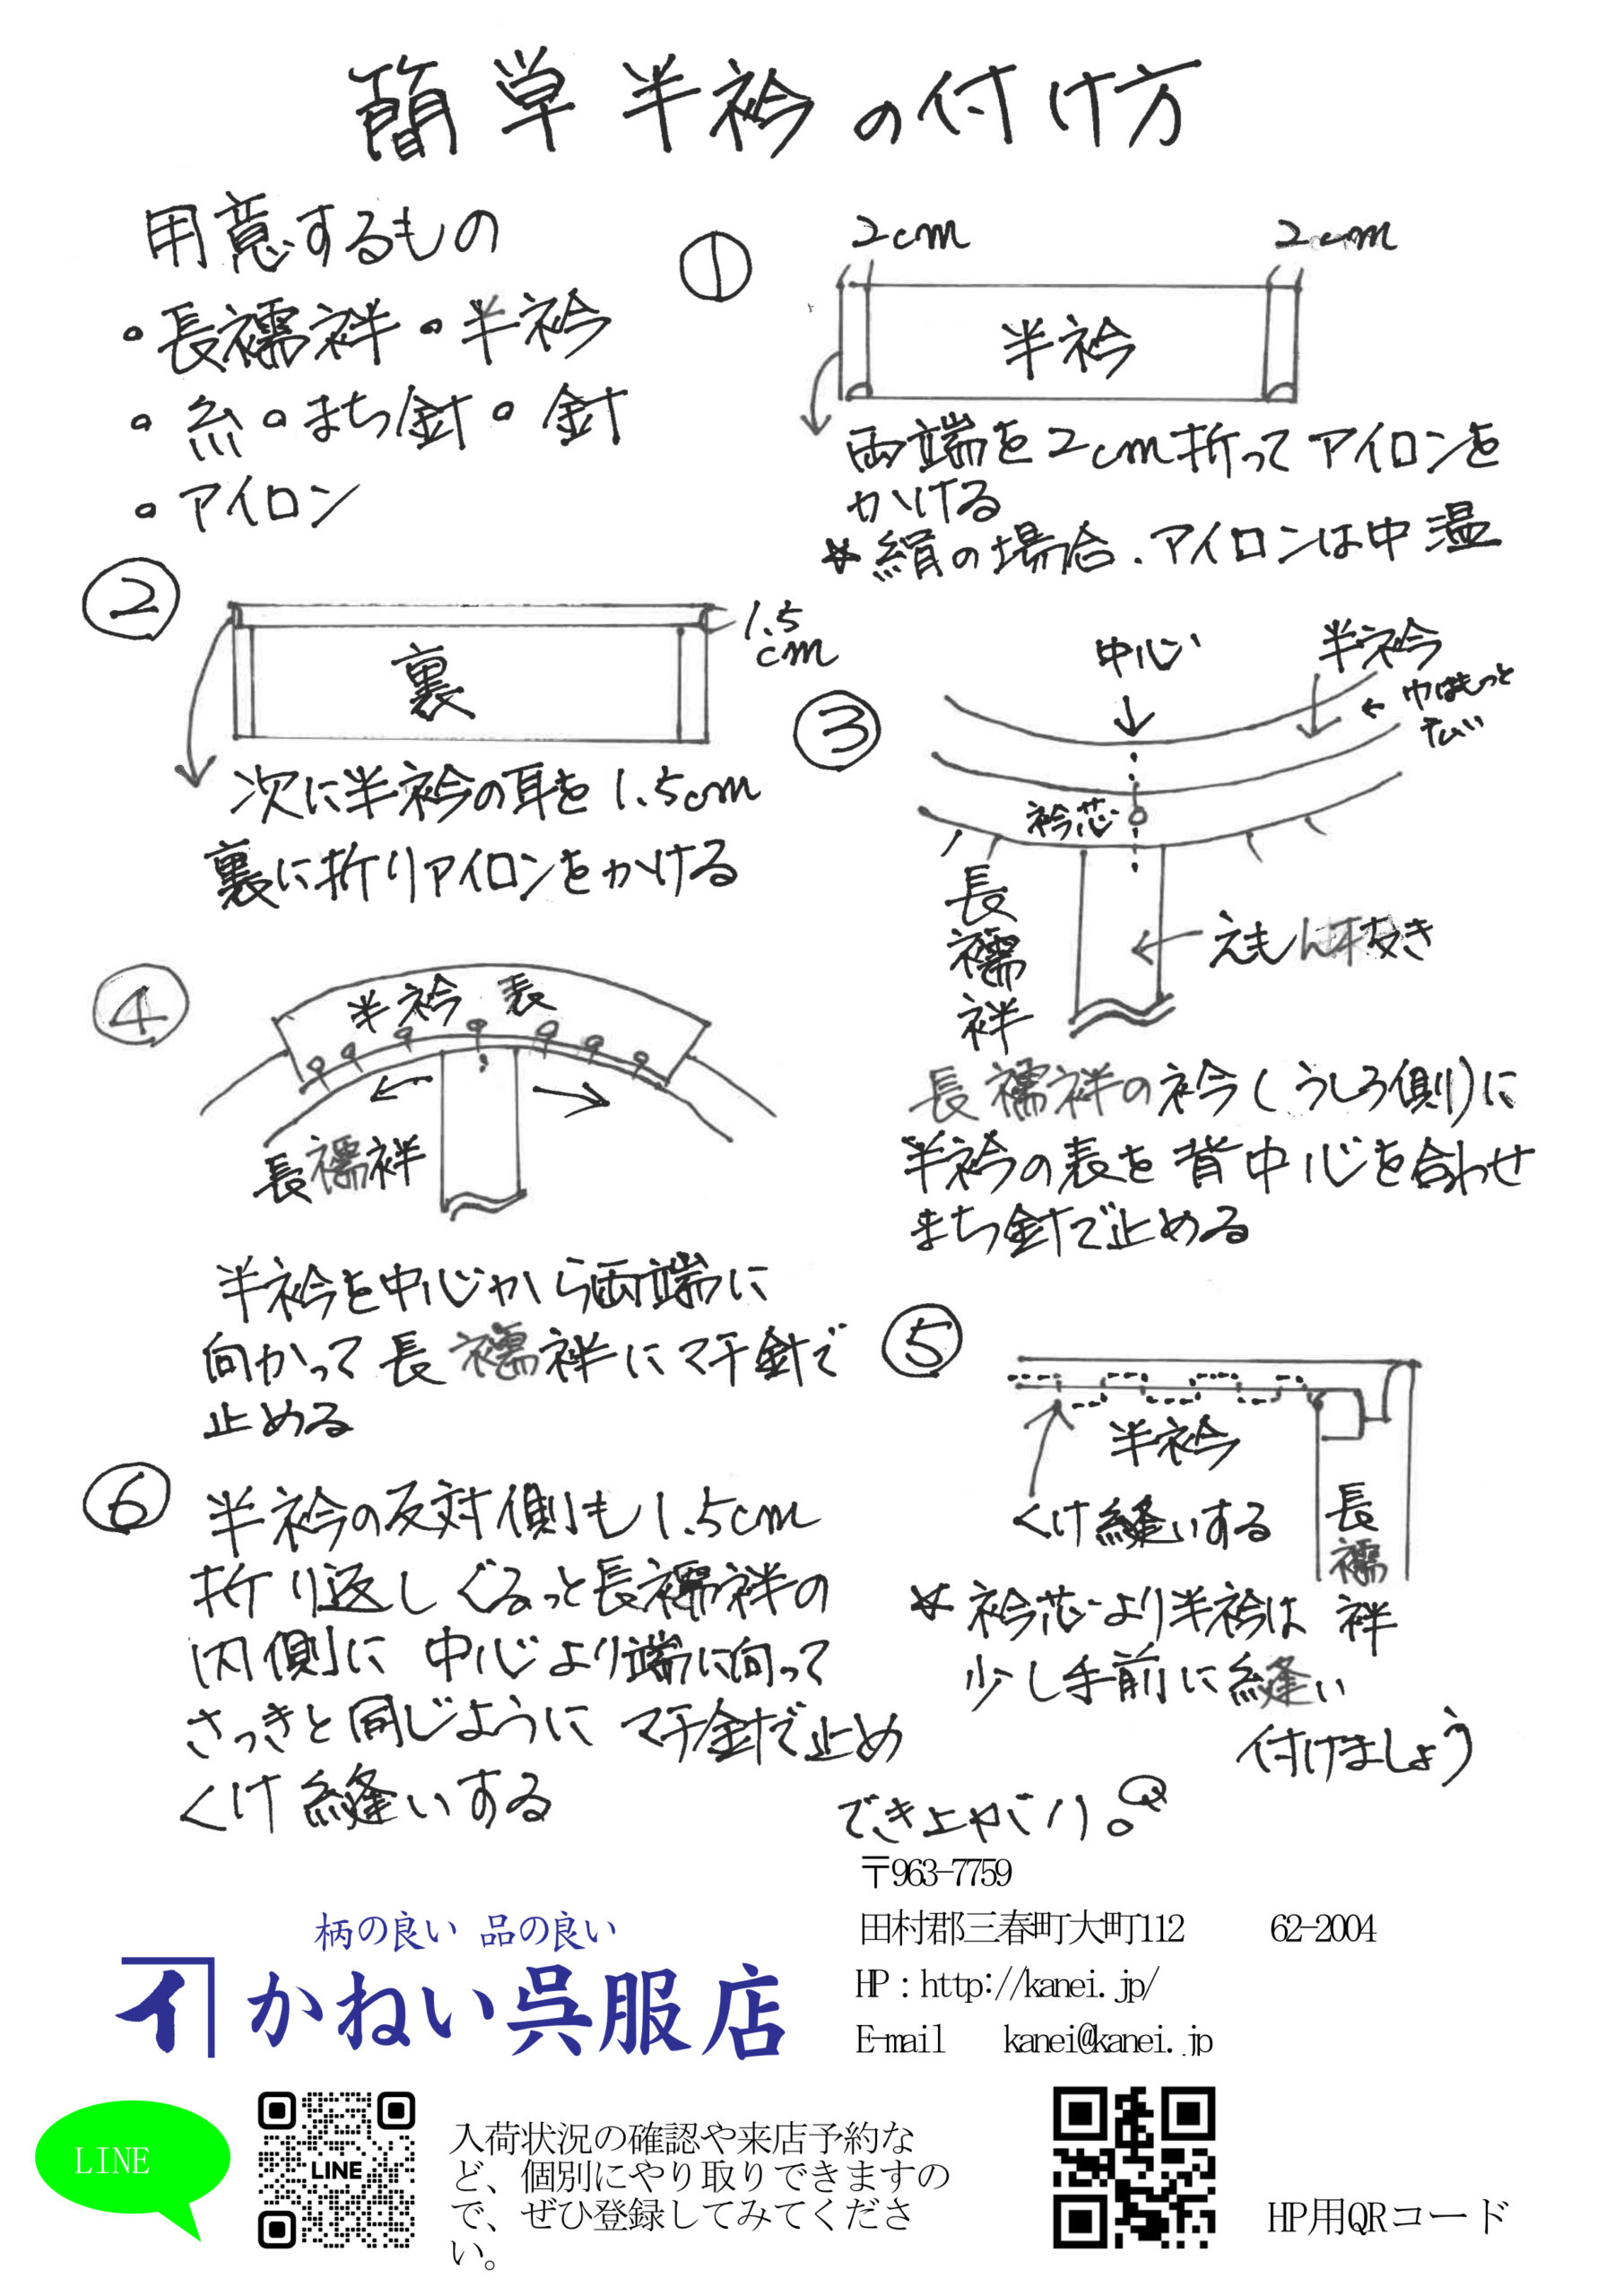 簡単半衿の付け方
用意するもの
・長襦袢・半衿
・糸・まち針・針
・アイロン
①
2cm 2cm
半衿
両端を2cm折ってアイロンを
かける
☆絹の場合.アイロンは中温
②
1.5
cm
裏
次に半衿の耳を1.5cm
裏に折りアイロンをかける
③
中心
半衿
←巾はもっと
広い
衿芯
長襦袢
←えもん抜き
長襦袢の衿(うしろ側)に
半衿の表を背中心を合わせ
まち針で止める
④
半衿 表
長襦袢
半衿を中心から両端に
向かって長襦袢にマチ針で
止める
⑤
半衿
くけ縫いする
長襦袢
☆衿芯より半衿は
少し手前に縫い
付けましょう
⑥
半衿の反対側も1.5cm
折り返しぐるっと長襦袢の
内側に中心より端に向って
さっきと同じようにマチ針で止め
くけ縫いする
でき上がり。
〒963-7759
田村郡三春町大町112 62-2004
HP：http://kanei.jp/
E-mail kanei@kanei.jp
柄の良い 品の良い
イ かねい呉服店
LINE
LINE
入荷状況の確認や来店予約な
ど、個別にやり取りできますの
で、ぜひ登録してみてくださ
い。
HP用QRコード